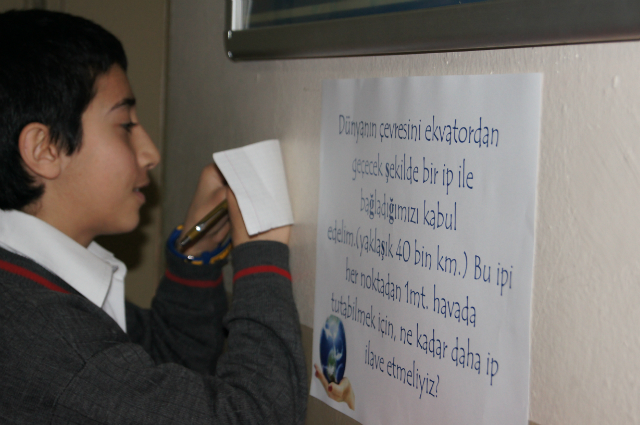 Dünyanın çevresini ekvatordan
geçecek şekilde bir ip ile
bağladığımızı kabul
edelim.(yaklaşık 40 bin km.) Bu ipi
her noktadan 1mt. havada
tutabilmek için, ne kadar daha ip
ilave etmeliyiz?